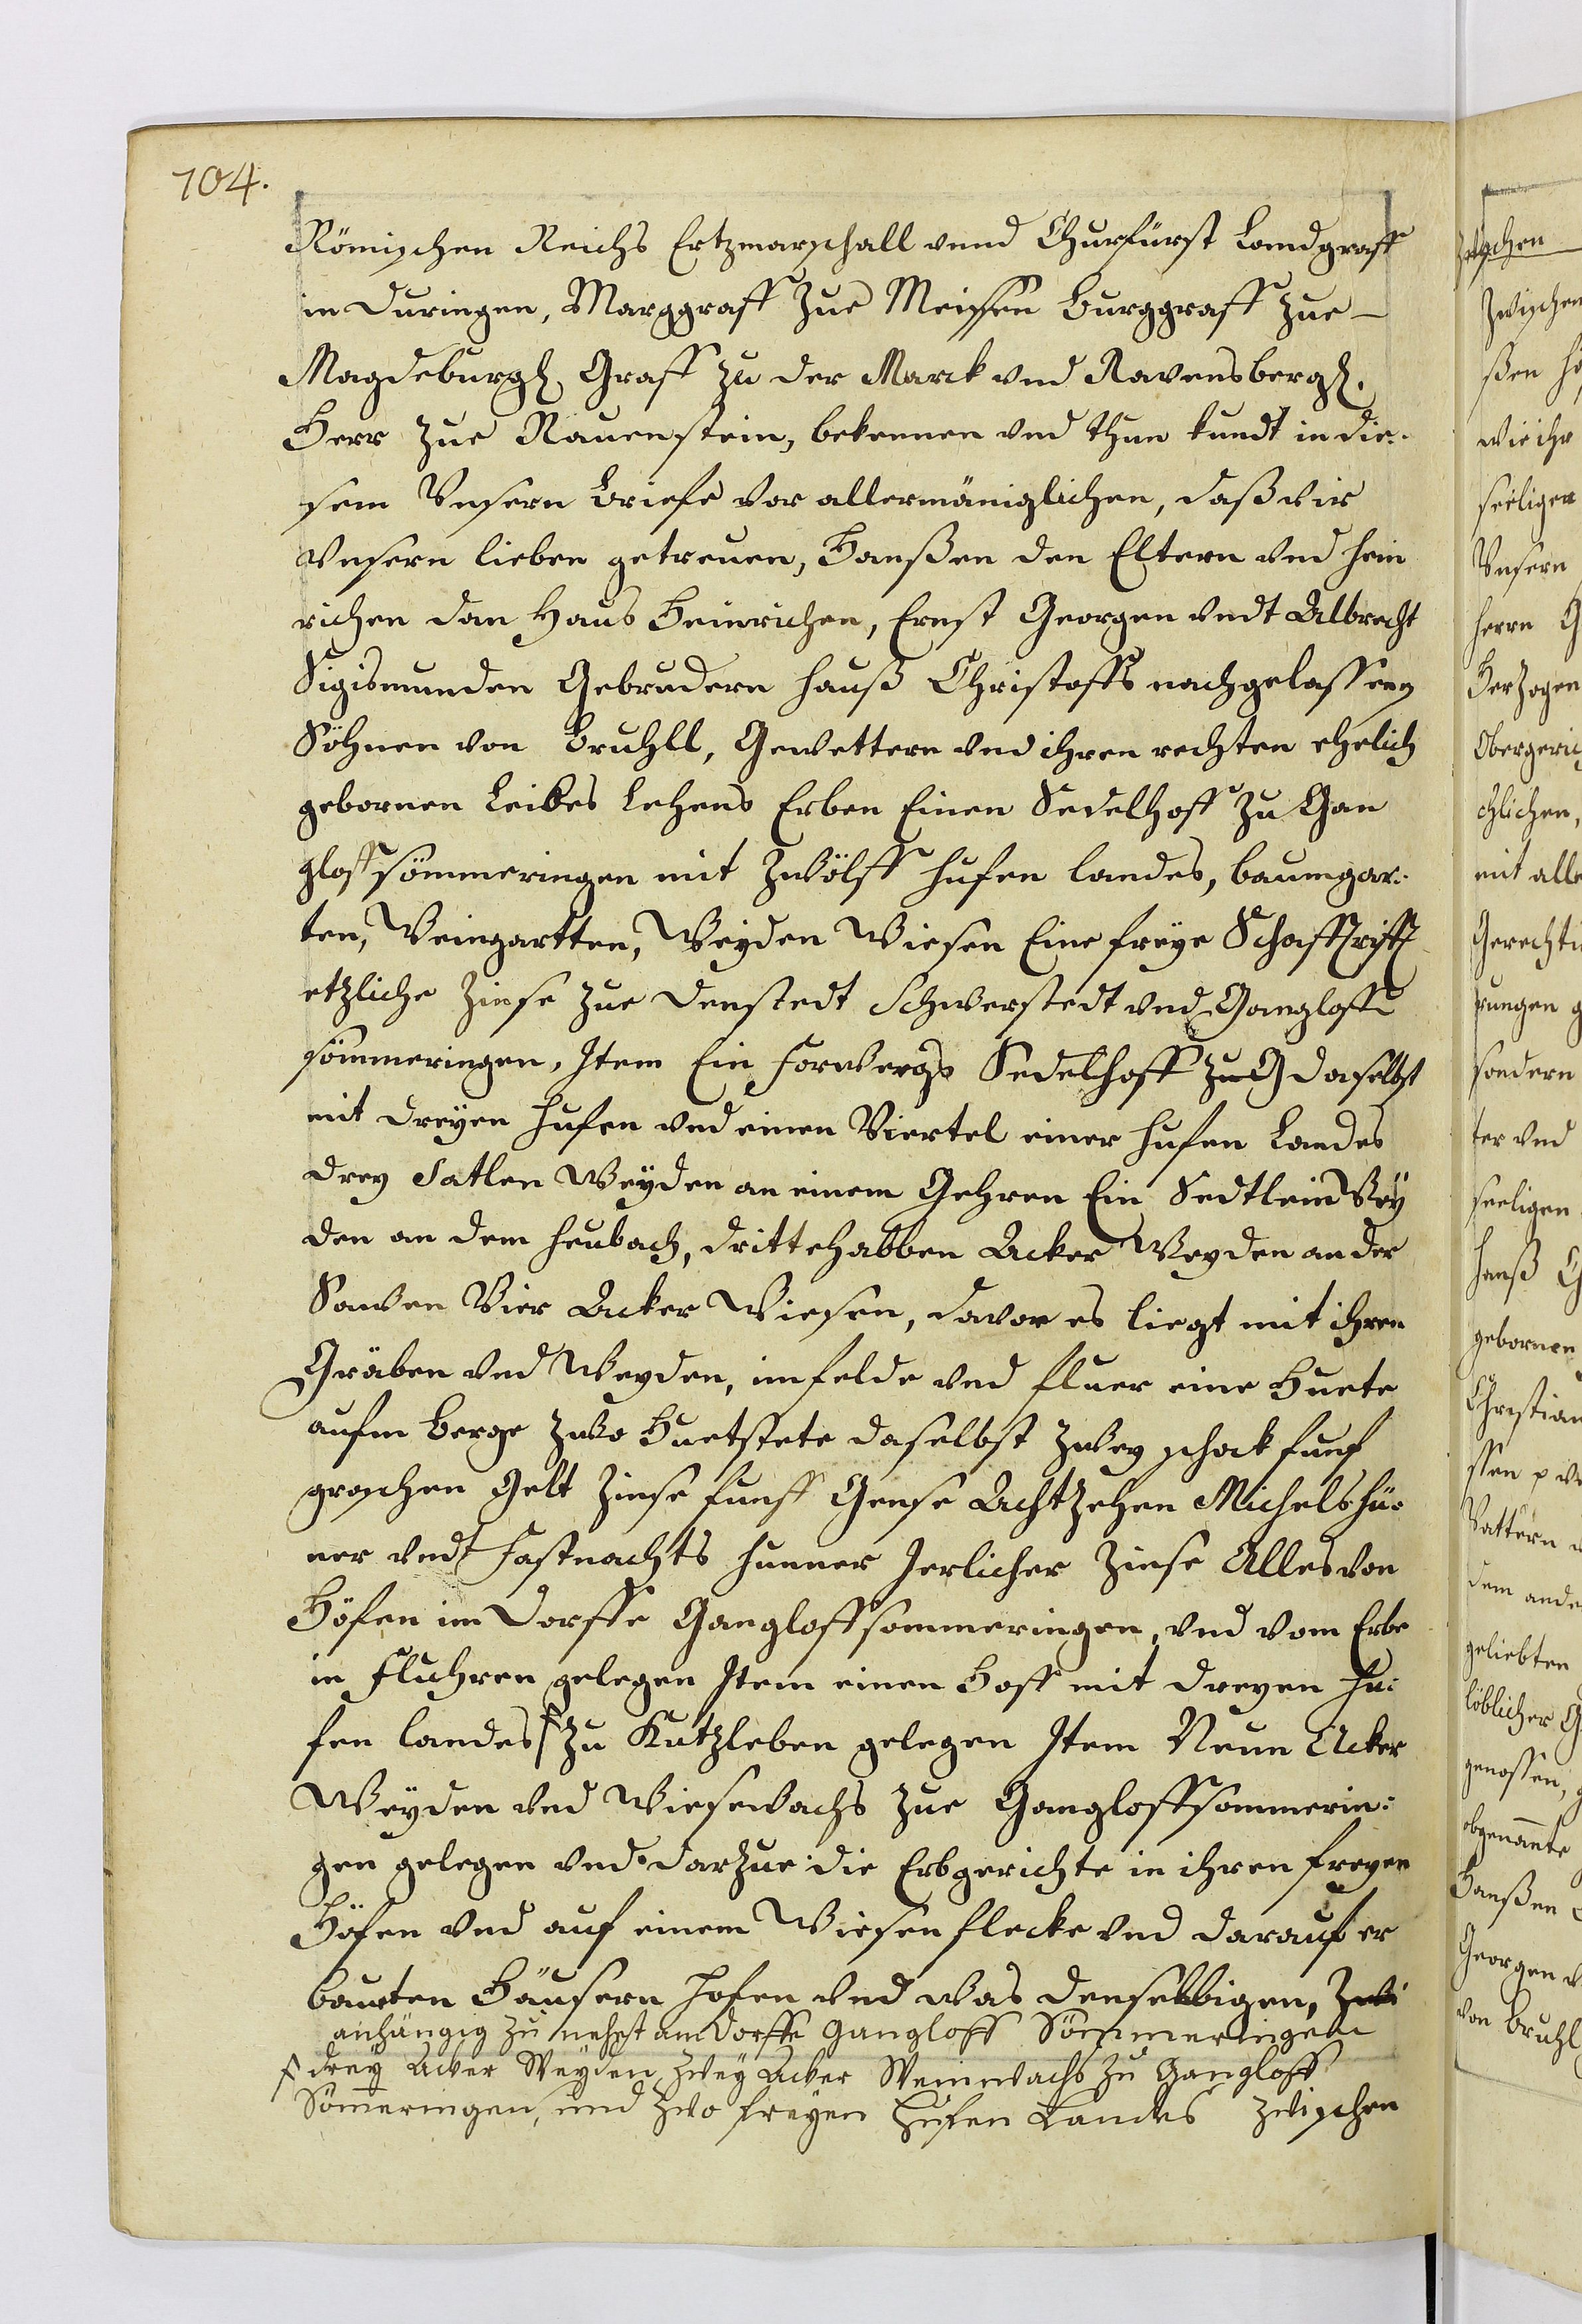 104.
Römischen Reichs Ertzmarschall vnnd Churfürst Landgraff
in Duringen, Marggraff zue Meissen Burggraff zue
Magdeburgk Graff zu der Marck vnd Ravensbergk.
Herr zue Rauenstein, bekennen vnd thun kundt in die:
sem Vnsern Briefe vor allermäniglichen, daß wir
vnsern lieben getreuen, Hanßen den Eltern vnd Hein
richen dan Hans Heinrichen, Ernst Georgen vndt Albrecht
Sigismunden Gebrudern Hanß Christoffs nachgelassenen
Söhnen von Bruhll, Gevettern vnd ihren rechten ehelich
gebornen Leibes Lehens Erben Einen Sedelhoff zu Gan
gloffsömmeringen mit zwölff Hufen Landes, baumgar:
ten, Weingartten, Weyden Wiesen Eine freye Schafftrifft
etzliche Zinse zue Denstedt Schwerstedt vnd Gangloff
sömmeringen, Item Ein Forwergs Sedelhoff zu G daselbst
mit dreyen Hufen vnd einen Viertel einer Hufen Landes
drey Satlen Weyden an einem Gehren Ein Sedtlein Wey
den an dem Heubach, drittehalben Acker Weyden an der
Sawen Vier Acker Wiesen, davor es liegt mit ihren
Gräben vnd Weyden, im felde vnd fluer eine Huete
aufm Berge zwo Huetstete daselbst zwey schock funf
groschen Gelt Zinse funff Gense Achtzehen Michelshü:
ner vndt Fastnachts hunner Jerlicher Zinse Alles von
Höfen im Dorffe Gangloffsommeringen, vnd vom Erbe
in Fluhren gelegen Item einen Hoff mit dreyen Hu:
fen Landes zu Kutzleben gelegen Item Neun Acker
Weyden vnd Wiesewachs zue Gangloffsommerin:
gen gelegen vnd darzue die Erbgerichte in ihren freyen
Höfen vnd auf einem Wiesenflecke vnd darauf er
bauten Häusern Hofen vnd was denselbigen, zwi
anhängig zu nehst am dorffe Gangloff Sömmeringen
drey Acker Weyden, zwey Acker Weinwachs zu Gangloff
Sömeringen, und zwo freyen Hufen Landes zwischen
zwischen
ßen
wie ihr
seeligen
Vnsern
herrn
Herzogen
Obergeric
chlichen,
mit alle
Gerechti
sondern
ter vnd
seeligen
Hanß
gebornen
Christian
ßen
Vattern
dem ande
geliebten
löblicher
genossen,
obgenante
Hanßen
Georgen
von Bruhl